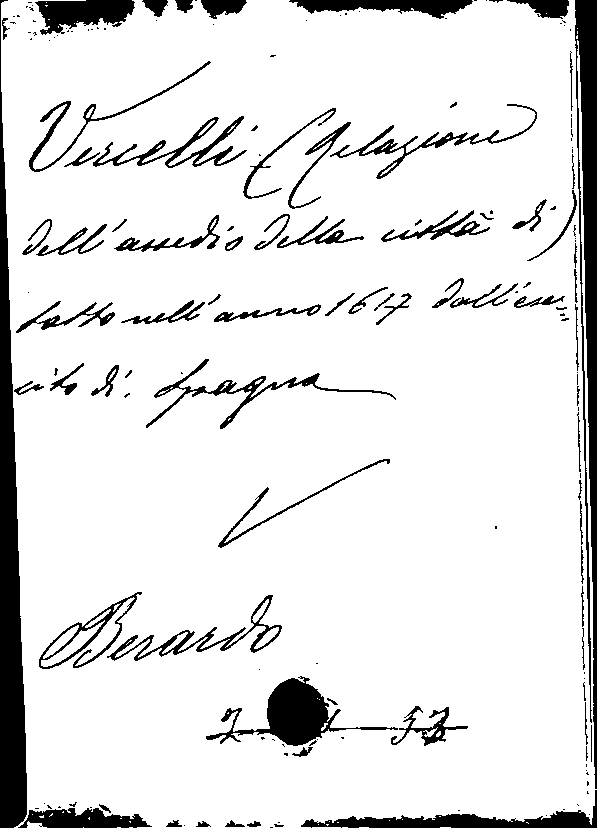 Vercelli (Relazione
dell'assedio della città di)
fatto nell'anno 1617 dall'eser=
cito di Spagna
Berardo